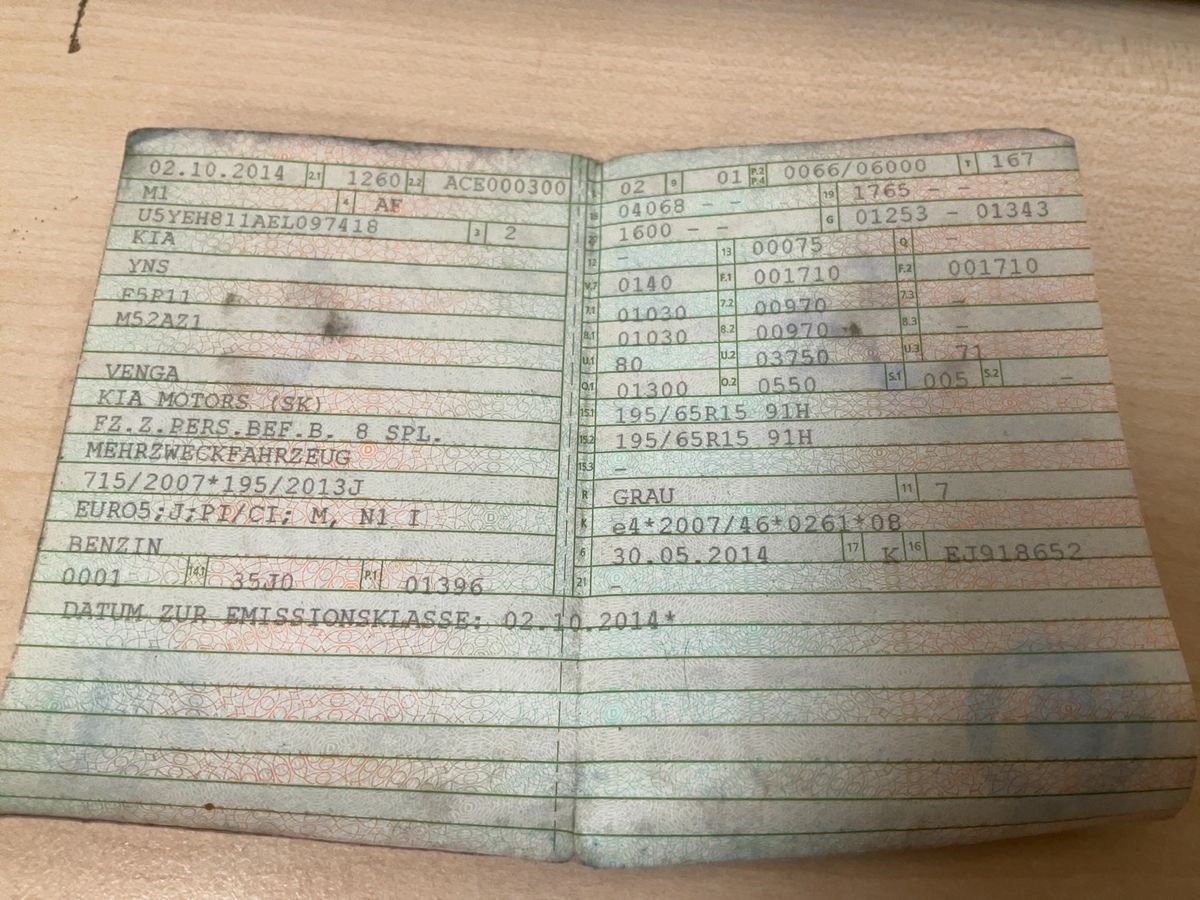 02.10.2014 2.1 1260 2.2 ACE000300
M1 4 AF
U5YEH811AEL097418 3 2
KIA
YNS
F5P11
M52AZ1
VENGA
KIA MOTORS (SK)
FZ.Z.PERS.BEF.B. 8 SPL.
MEHRZWECKFAHRZEUG
715/2007*195/2013J
EURO5;J;PI/CI; M, N1 I
BENZIN
0001 14.1 35J0 P.1 01396
DATUM ZUR EMISSIONSKLASSE: 02.10.2014*
L 02 9 01 P.2 P.4 0066/06000 T 167
18 04068 - - 19 1765 - -
20 1600 - - G 01253 - 01343
12 - 13 00075 Q -
V.7 0140 F.1 001710 F.2 001710
7.1 01030 7.2 00970 7.3 -
8.1 01030 8.2 00970 8.3 -
U.1 80 U.2 03750 U.3 71
O.1 01300 O.2 0550 S.1 005 S.2 -
15.1 195/65R15 91H
15.2 195/65R15 91H
15.3 -
R GRAU 11 7
K e4*2007/46*0261*08
6 30.05.2014 17 K 16 EJ918652
21 -